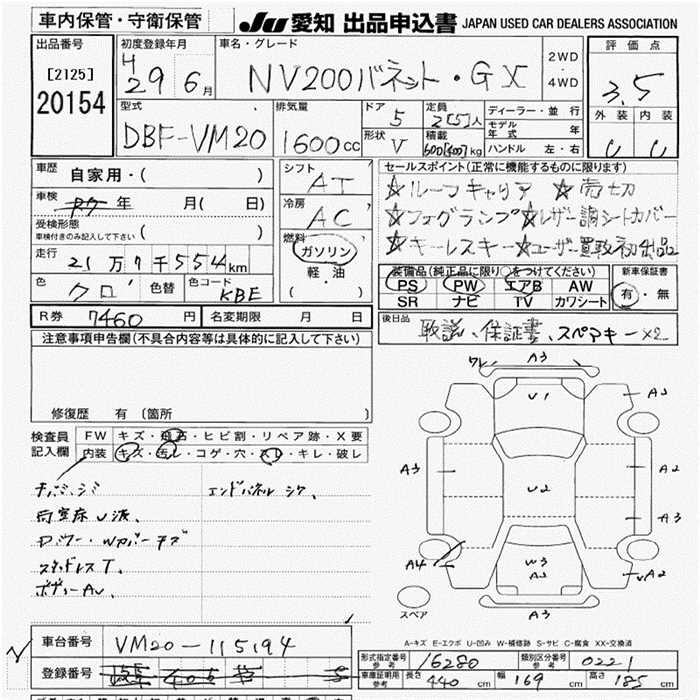 車内保管・守衛保管 JU 愛知 出品申込書 JAPAN USED CAR DEALERS ASSOCIATION
出品番号 初度登録年月 車名・グレード 評価点
[2125] H 29 6月 NV200バネット・GX 2WD・4WD 3.5
20154 型式 排気量 ドア 5 定員 2[5]人 ディーラー・並行 外装 内装
DBF-VM20 1600cc 形状 V 積載 600[400]kg モデル年式 年 ハンドル 左・右 U U
車歴 自家用・( ) シフト AT セールスポイント(正常に機能するものに限ります)
車検 年 月( 日) 冷房 AC ☆ルーフキャリア ☆売切
受検形態 車検付きのみ記入して下さい ( ) ☆フォグランプ☆レザー調シートカバー
走行 21万7千554km 燃料 ガソリン ☆キーレスキー☆ユーザー買取初出品
軽油 ( ) 装備品(純正品に限り○をつけてください) 新車保証書
色 クロ 色替 色コード KBE PS PW エアB AW 有・無
SR ナビ TV カワシート
R券 7460円 名変期限 月 日 後日品 取説、保証書、スペアキー×2
注意事項申告欄(不具合内容等は具体的に記入して下さい)
修復歴 有 (箇所 )
検査員記入欄 FW キズ・飛石・ヒビ割・リペア跡・X要
内装 キズ・汚レ・コゲ・穴・スレ・キレ・破レ
エンドパネルシワ、
荷室床U派、
スタッドレスT、
ボディーAU、
ワレ A3
U1 A3
A3 U2 A3
A4 W3 A2 A2
A3
スペア
A-キズ E-エクボ U-凹み W-補修跡 S-サビ C-腐食 XX-交換済
車台番号 VM20-115194
登録番号
形式指定番号 参考 16280 類別区分番号 参考 0221
車庫証明用 参考 長さ 440cm 幅 169cm 高さ 185cm